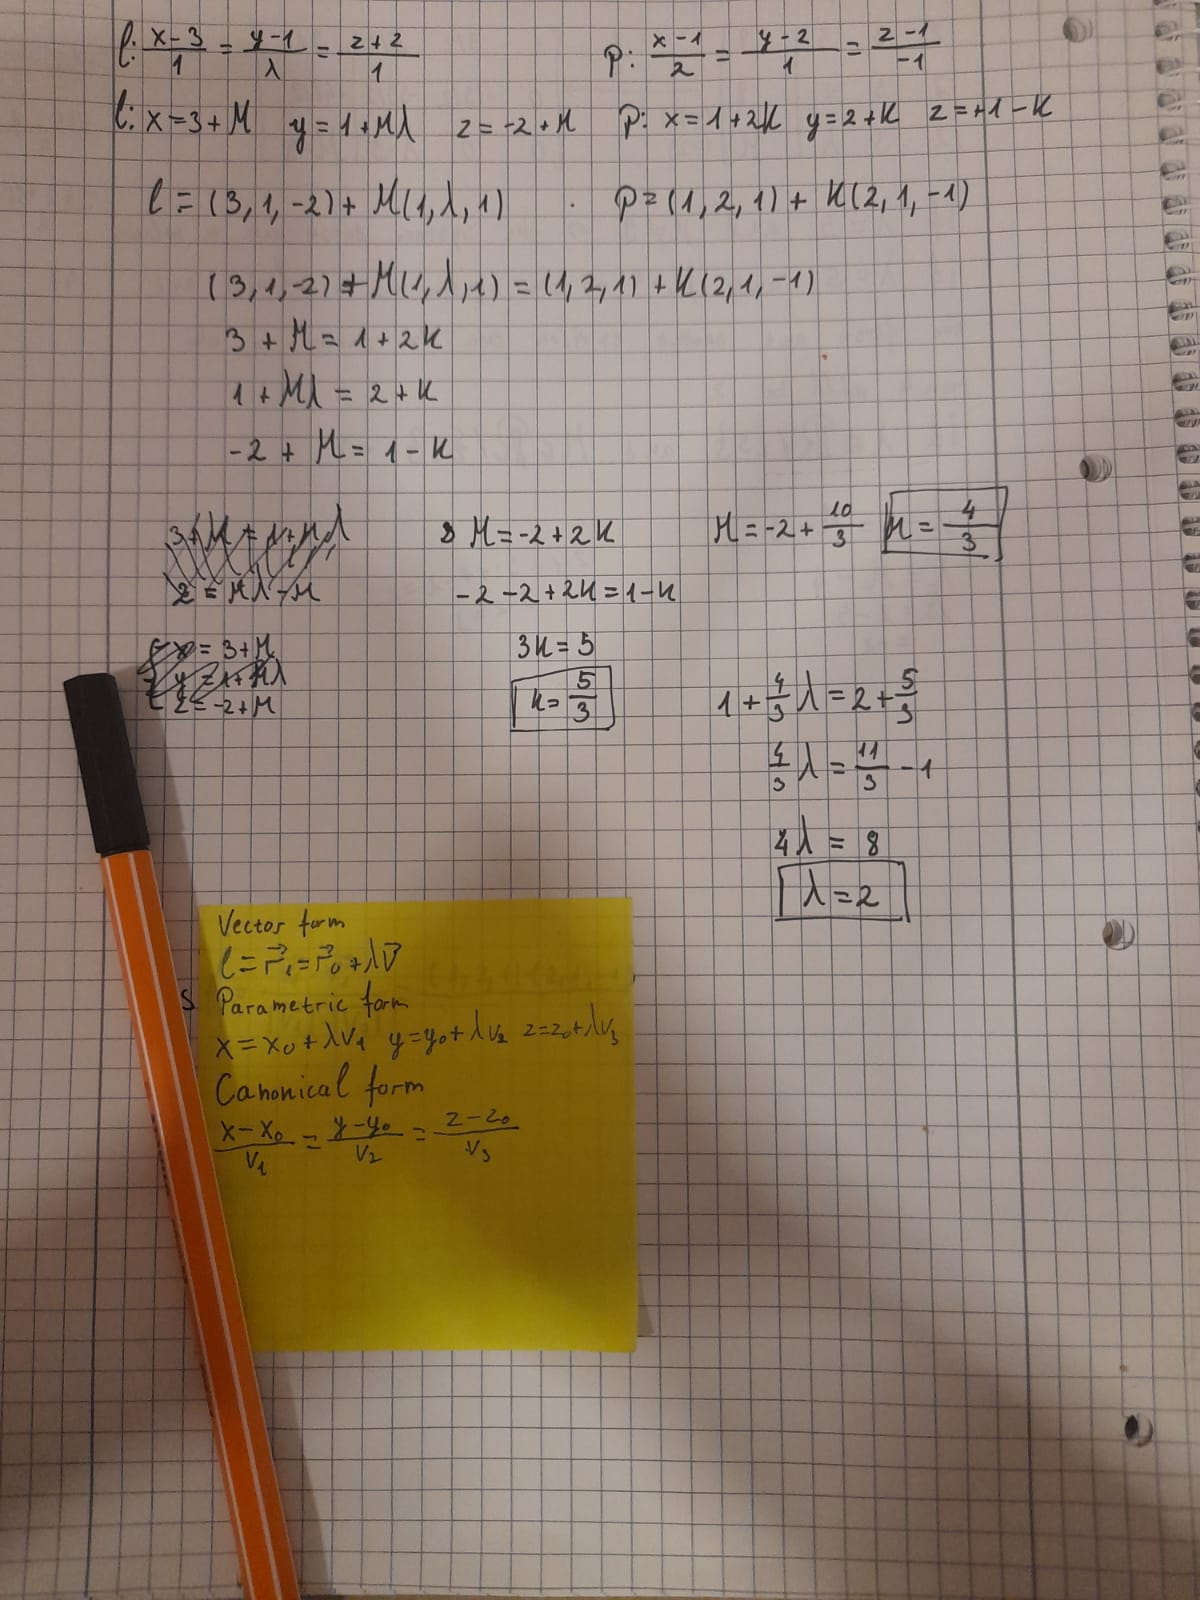 l: (x-3)/1 = (y-1)/λ = (z+2)/1    p: (x-1)/2 = (y-2)/1 = (z-1)/-1
l: x=3+M  y=1+Mλ  z=-2+M    p: x=1+2K  y=2+K  z=+1-K
l = (3,1,-2)+ M(1,λ,1)    p=(1,2,1)+ K(2,1,-1)
(3,1,-2)+M(1,λ,1) = (1,2,1)+K(2,1,-1)
3+M=1+2K
1+Mλ = 2+K
-2+M= 1-K
M=-2+2K
-2-2+2K=1-K
3K=5
K=5/3
M=-2+10/3  M=4/3
1+4/3 λ=2+5/3
4/3 λ = 11/3 -1
4λ = 8
λ=2
x = 3+M
y = 1+Mλ
z=-2+M
Vector form
l=r⃗₁=r⃗₀+λv⃗
Parametric form
x=x₀+λv₁  y=y₀+λv₂  z=z₀+λv₃
Canonical form
(x-x₀)/v₁ = (y-y₀)/v₂ = (z-z₀)/v₃